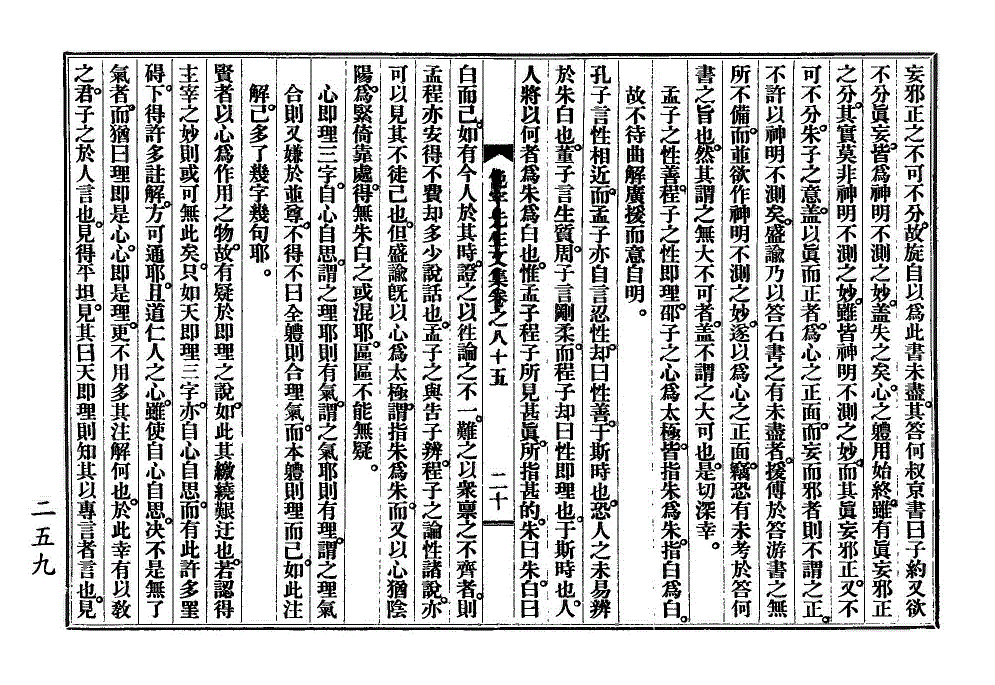 妄邪正之不可不分。故旋自以爲此書未盡。其答何叔京書曰子約又欲
不分眞妄。皆爲神明不測之妙。盖失之矣。心之軆用始終。雖有眞妄邪正
之分。其實莫非神明不測之妙。雖皆神明不測之妙。而其眞妄邪正。又不
可不分。朱子之意。盖以眞而正者。爲心之正面。而妄而邪者則不謂之正。
不許以神明不測矣。盛諭乃以答石書之有未盡者。援傅於答游書之無
所不備。而並欲作神明不測之妙。遂以爲心之正面。竊恐有未考於答何
書之旨也。然其謂之無大不可者。盖不謂之大可也。是切深幸。
孟子之性善。程子之性卽理。邵子之心爲太極。皆指朱爲朱。指白爲白。
故不待曲解廣援而意自明。
孔子言性相近。而孟子亦自言忍性。却曰性善。于斯時也。恐人之未易辨
於朱白也。董子言生質。周子言剛柔。而程子却曰性卽理也。于斯時也。人
人將以何者爲朱爲白也。惟孟子程子所見甚眞。所指甚的。朱曰朱。白曰
之八十五
二十
白而已。如有今人於其時。證之以往論之不一。難之以衆禀之不齊者。則
孟程亦安得不費却多少說話也。孟子之與告子辨。程子之論性諸說。亦
可以見其不徒已也。但盛諭旣以心爲太極。謂指朱爲朱。而又以心猶陰
陽。爲緊倚靠處。得無朱白之或混耶。區區不能無疑。
心卽理三字。自心自思。謂之理耶則有氣。謂之氣耶則有理。謂之理氣
合則又嫌於並尊。不得不曰全軆則合理氣。而本軆則理而已。如此注
解。已多了幾字幾句耶。
賢者以心爲作用之物。故有疑於卽理之說。如此其繳繞艱迂也。若認得
主宰之妙則或可無此矣。只如天卽理三字。亦自心自思。而有此許多罣
碍。下得許多註解。方可通耶。且道仁人之心。雖使自心自思。决不是無了
氣者。而猶曰理卽是心。心卽是理。更不用多其注解何也。於此幸有以敎
之。君子之於人言也。見得平坦。見其曰天卽理則知其以專言者言也。見
二五九